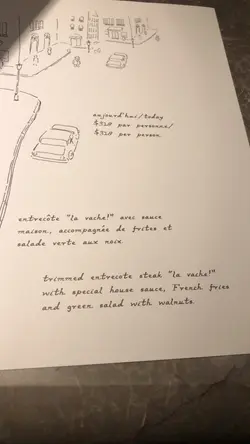 aujourd'hui/today
$328 per personne/
$328 per person
entrecôte "la vache!" avec sauce
maison, accompagnée de frites et
salade verte aux noix
trimmed entrecote steak "la vache!"
with special house sauce, French fries
and green salad with walnuts